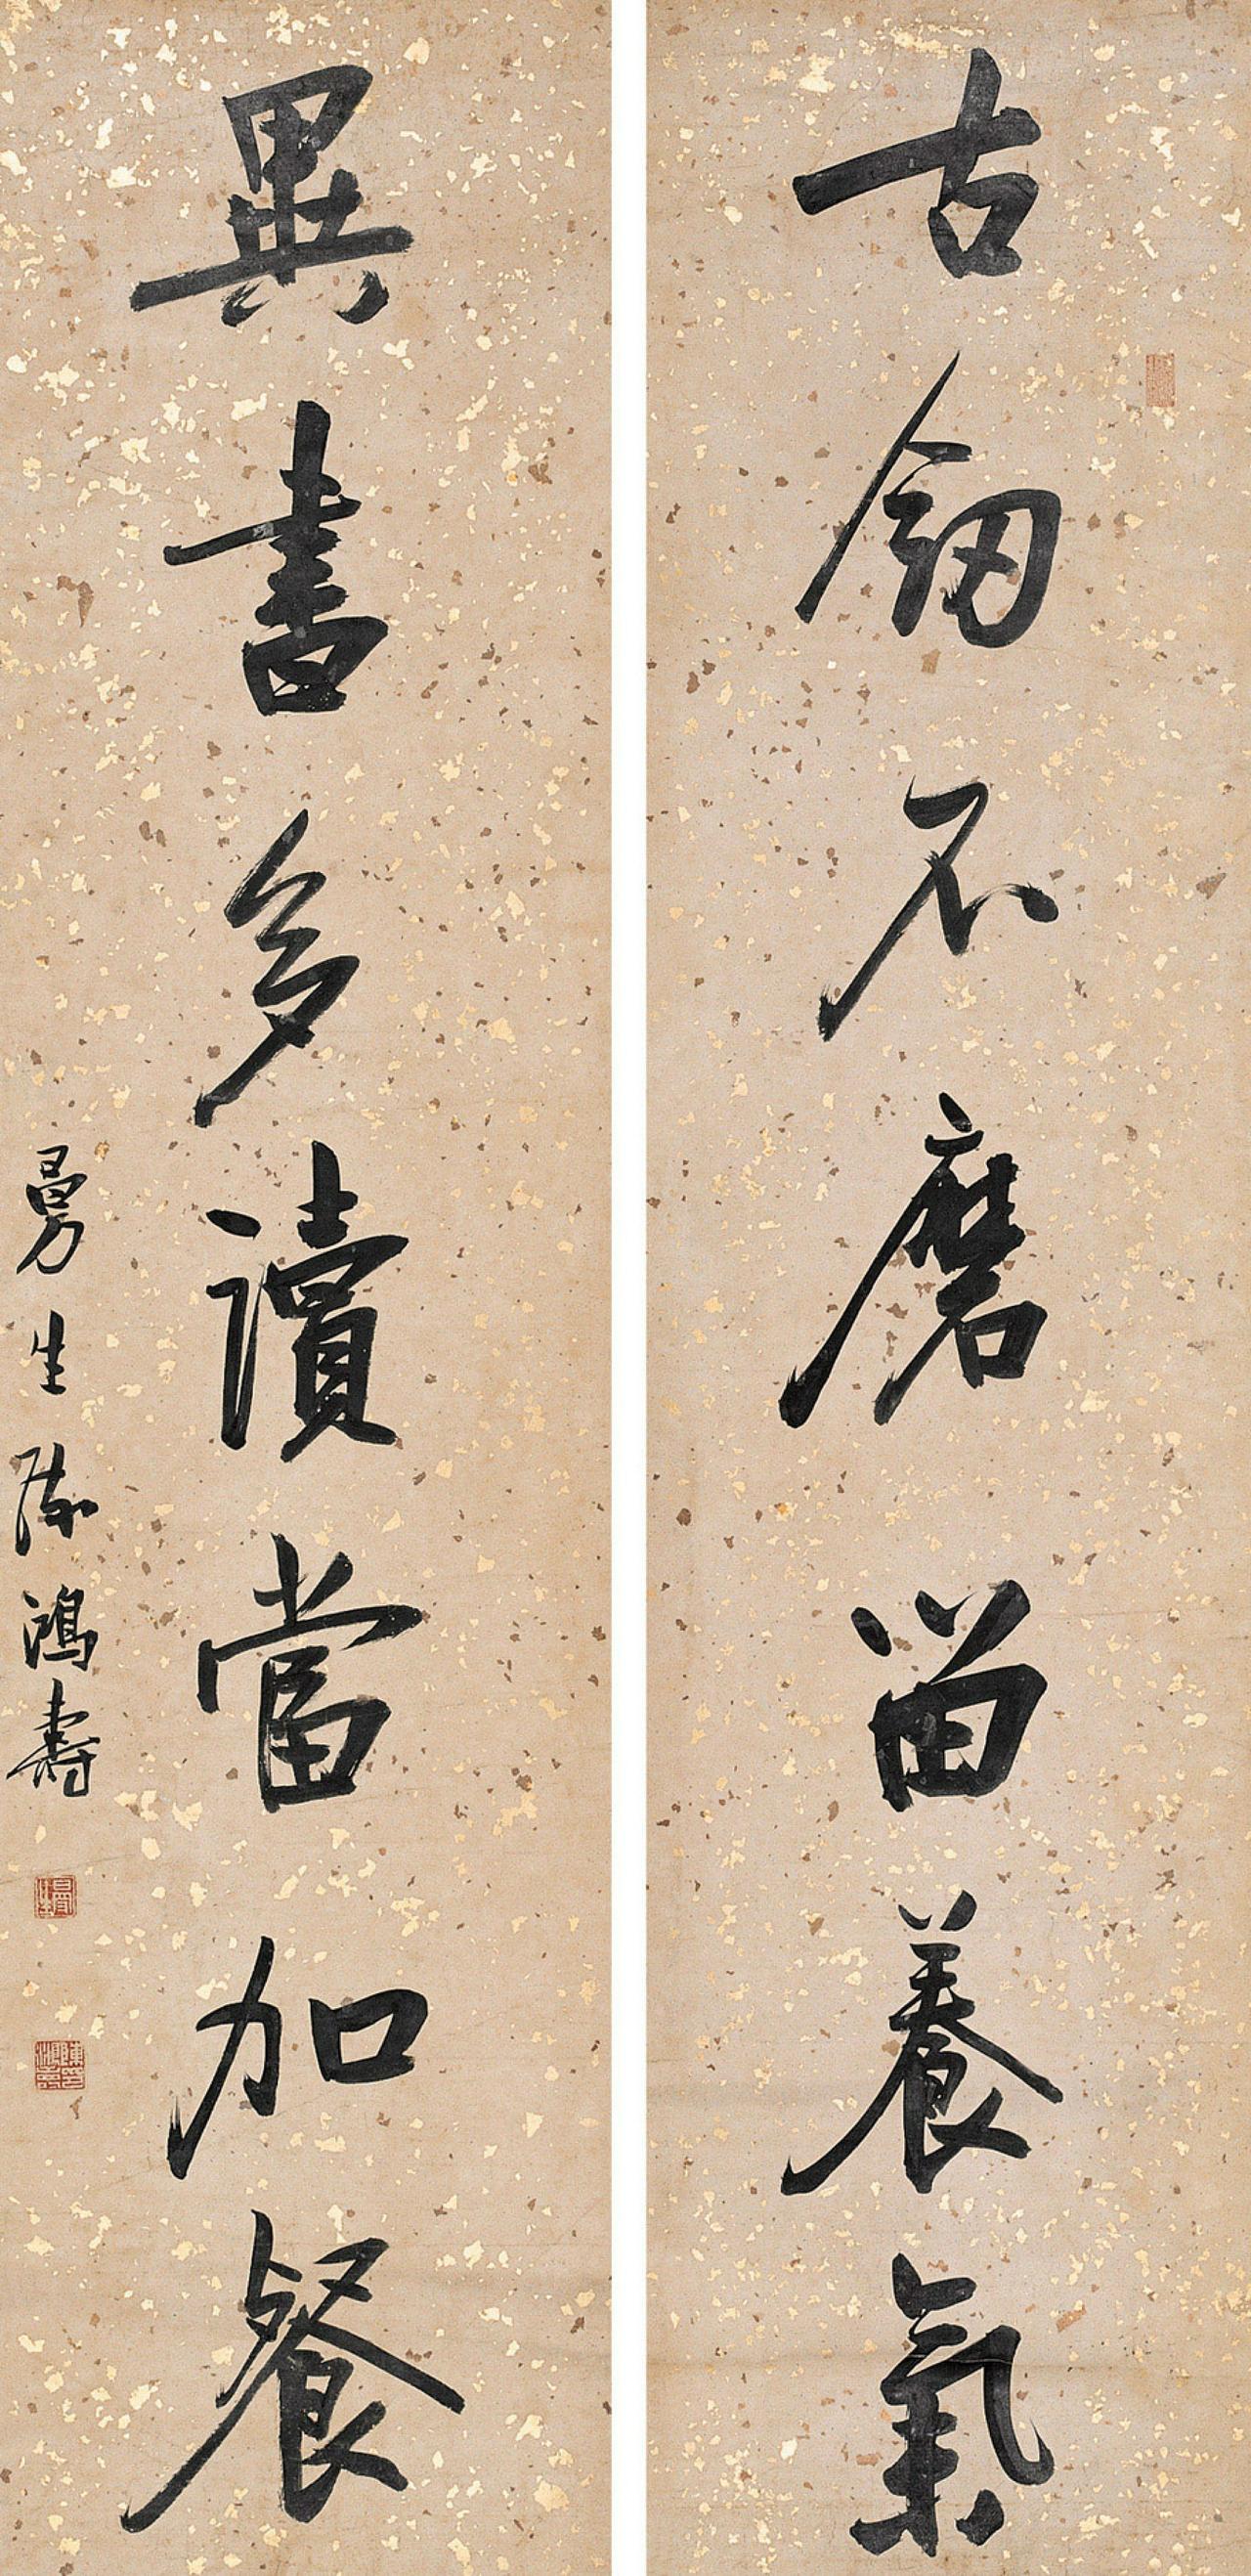 古劔不磨留養氣
異書多讀當加餐
曼生陳鴻壽